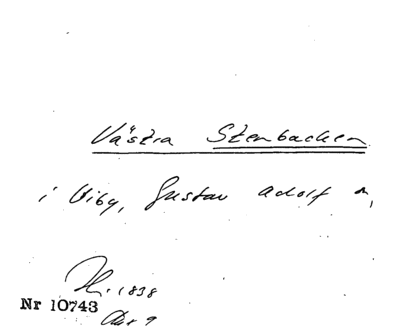 Västra Stenbacken
i Viby, Gustav Adolf
1838
Nr 10743